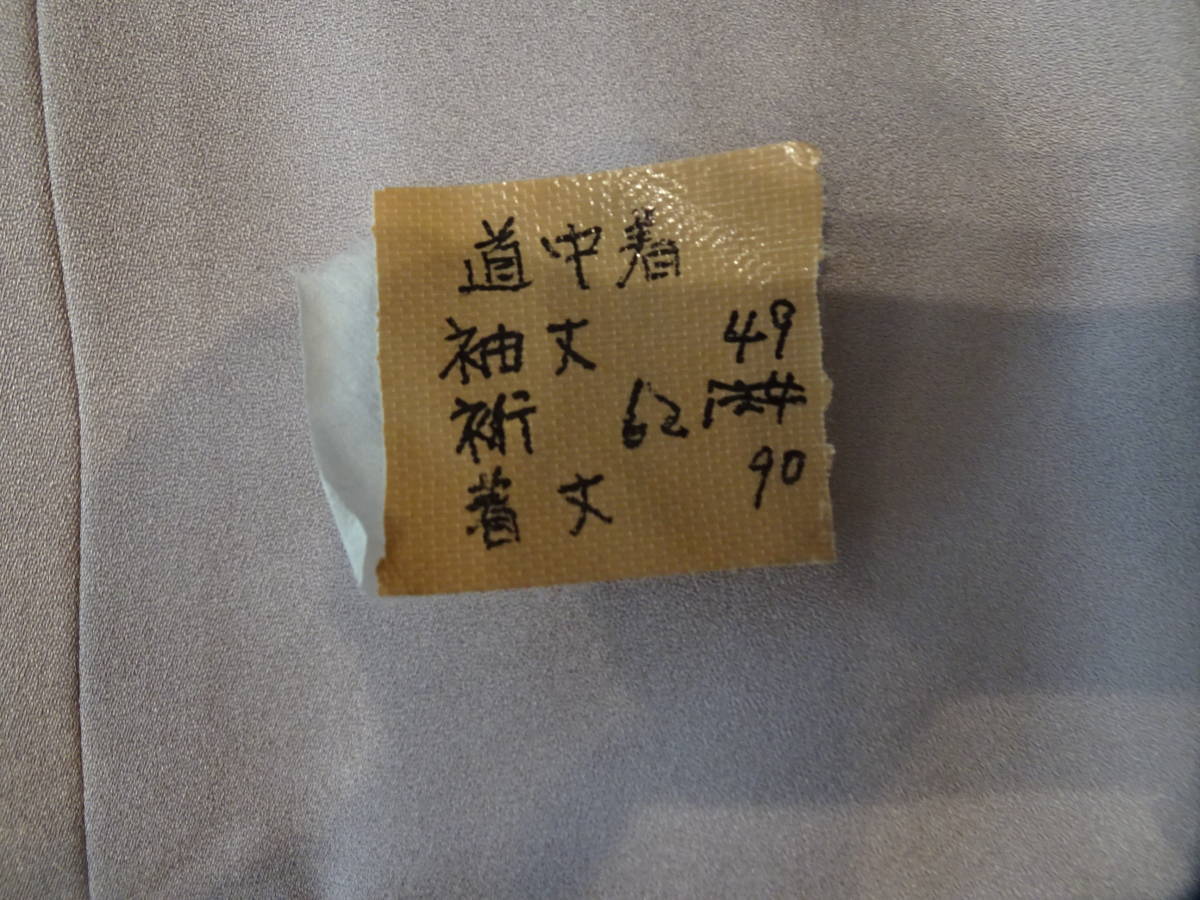 道中着
袖丈 49
裄 62
着丈 90